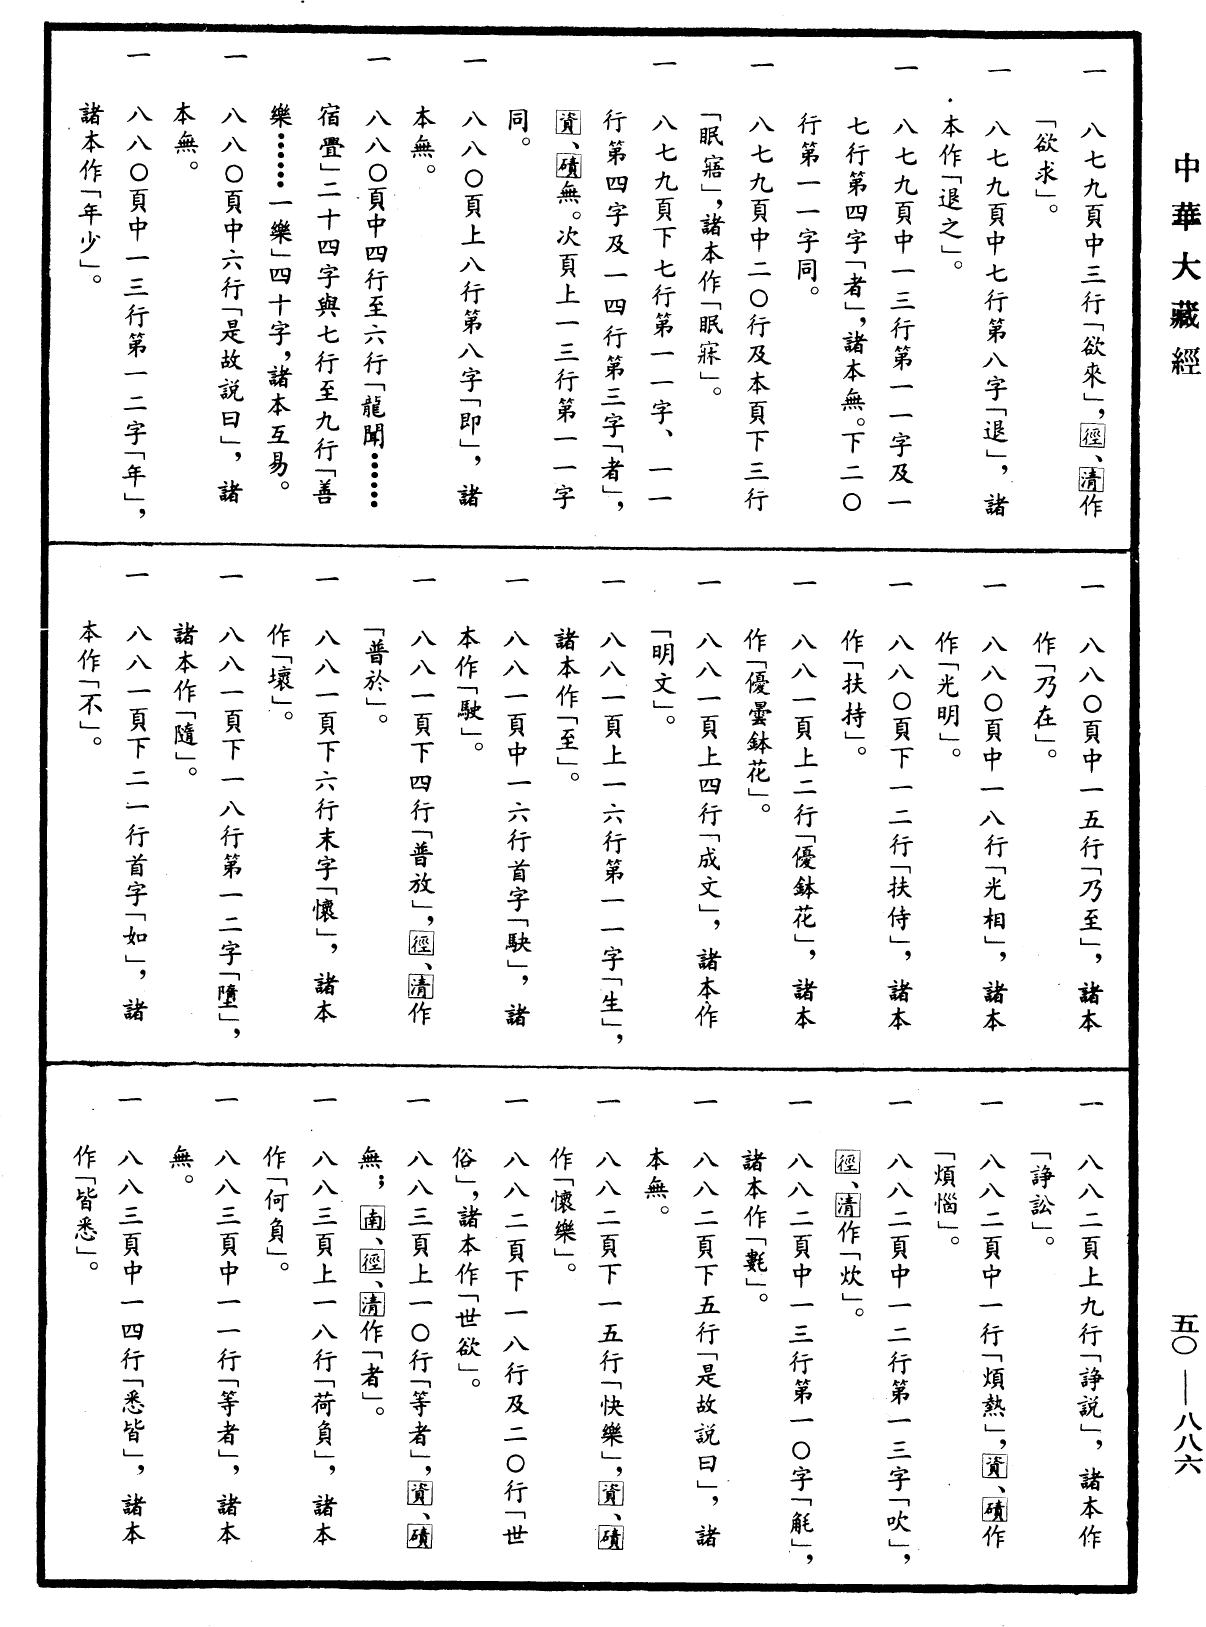 中華大藏經
五〇——八八六
一　八七九頁中三行「欲來」，徑、清作
「欲求」。
一　八七九頁中七行第八字「退」，諸
本作「退之」。
一　八七九頁中一三行第一一字及一
七行第四字「者」，諸本無。下二〇
行第一一字同。
一　八七九頁中二〇行及本頁下三行
「眠寤」，諸本作「眠寐」。
一　八七九頁下七行第一一字、一一
行第四字及一四行第三字「者」，
資、磧無。次頁上一三行第一一字
同。
一　八八〇頁上八行第八字「即」，諸
本無。
一　八八〇頁中四行至六行「龍聞……
宿疊」二十四字與七行至九行「善
樂……一樂」四十字，諸本互易。
一　八八〇頁中六行「是故說曰」，諸
本無。
一　八八〇頁中一三行第一二字「年」，
諸本作「年少」。
一　八八〇頁中一五行「乃至」，諸本
作「乃在」。
一　八八〇頁中一八行「光相」，諸本
作「光明」。
一　八八〇頁下一二行「扶侍」，諸本
作「扶持」。
一　八八一頁上二行「優鉢花」，諸本
作「優曇鉢花」。
一　八八一頁上四行「成文」，諸本作
「明文」。
一　八八一頁上一六行第一一字「生」，
諸本作「至」。
一　八八一頁中一六行首字「駃」，諸
本作「駛」。
一　八八一頁下四行「普放」，徑、清作
「普於」。
一　八八一頁下六行末字「懷」，諸本
作「壞」。
一　八八一頁下一八行第一二字「墮」，
諸本作「隨」。
一　八八一頁下二一行首字「如」，諸
本作「不」。
一　八八二頁上九行「諍說」，諸本作
「諍訟」。
一　八八二頁中一行「煩熱」，資、磧作
「煩惱」。
一　八八二頁中一二行第一三字「吹」，
徑、清作「炊」。
一　八八二頁中一三行第一〇字「毹」，
諸本作「氎」。
一　八八二頁下五行「是故說曰」，諸
本無。
一　八八二頁下一五行「快樂」，資、磧
作「懷樂」。
一　八八二頁下一八行及二〇行「世
俗」，諸本作「世欲」。
一　八八三頁上一〇行「等者」，資、磧
無；南、徑、清作「者」。
一　八八三頁上一八行「荷負」，諸本
作「何負」。
一　八八三頁中一一行「等者」，諸本
無。
一　八八三頁中一四行「悉皆」，諸本
作「皆悉」。